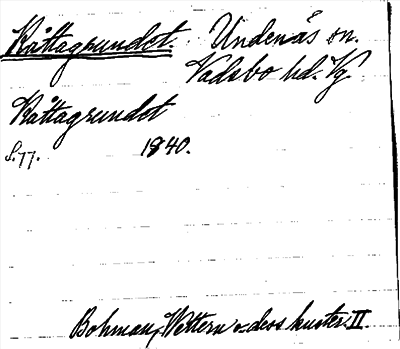 Råttagrundet. Undenäs sn.
Vadsbo hd. Vg.
Råttagrundet
S. 77. 1840.
Bohman, Vettern o. dess kuster. II.